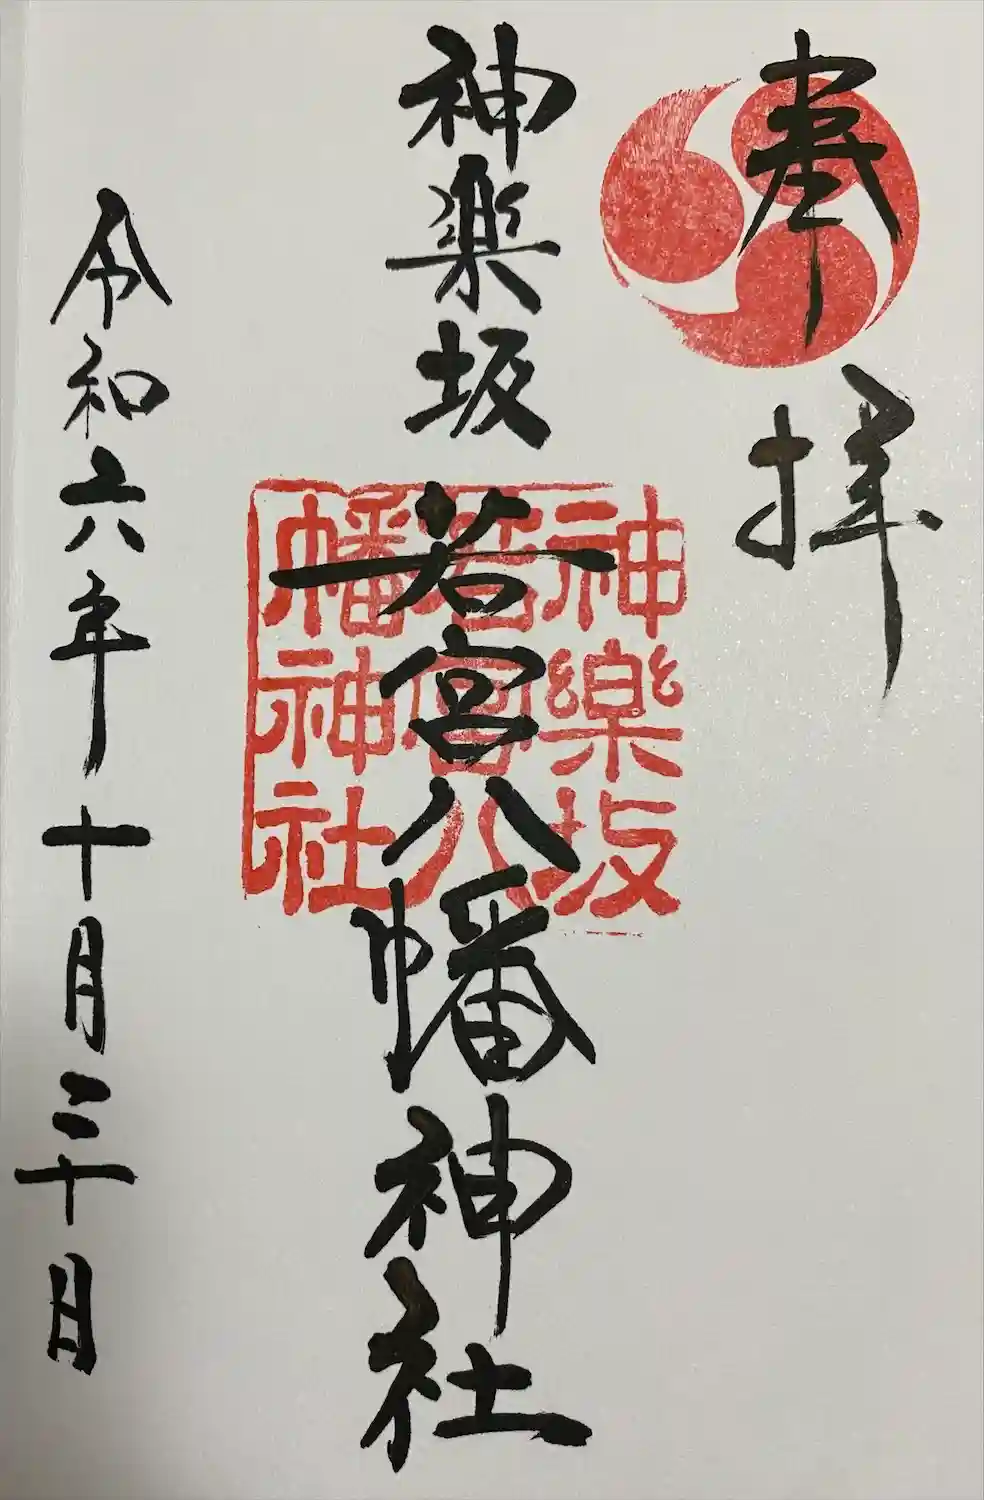 奉拝
神楽坂若宮八幡神社
神樂坂
若宮八
幡神社
令和六年十月三十日